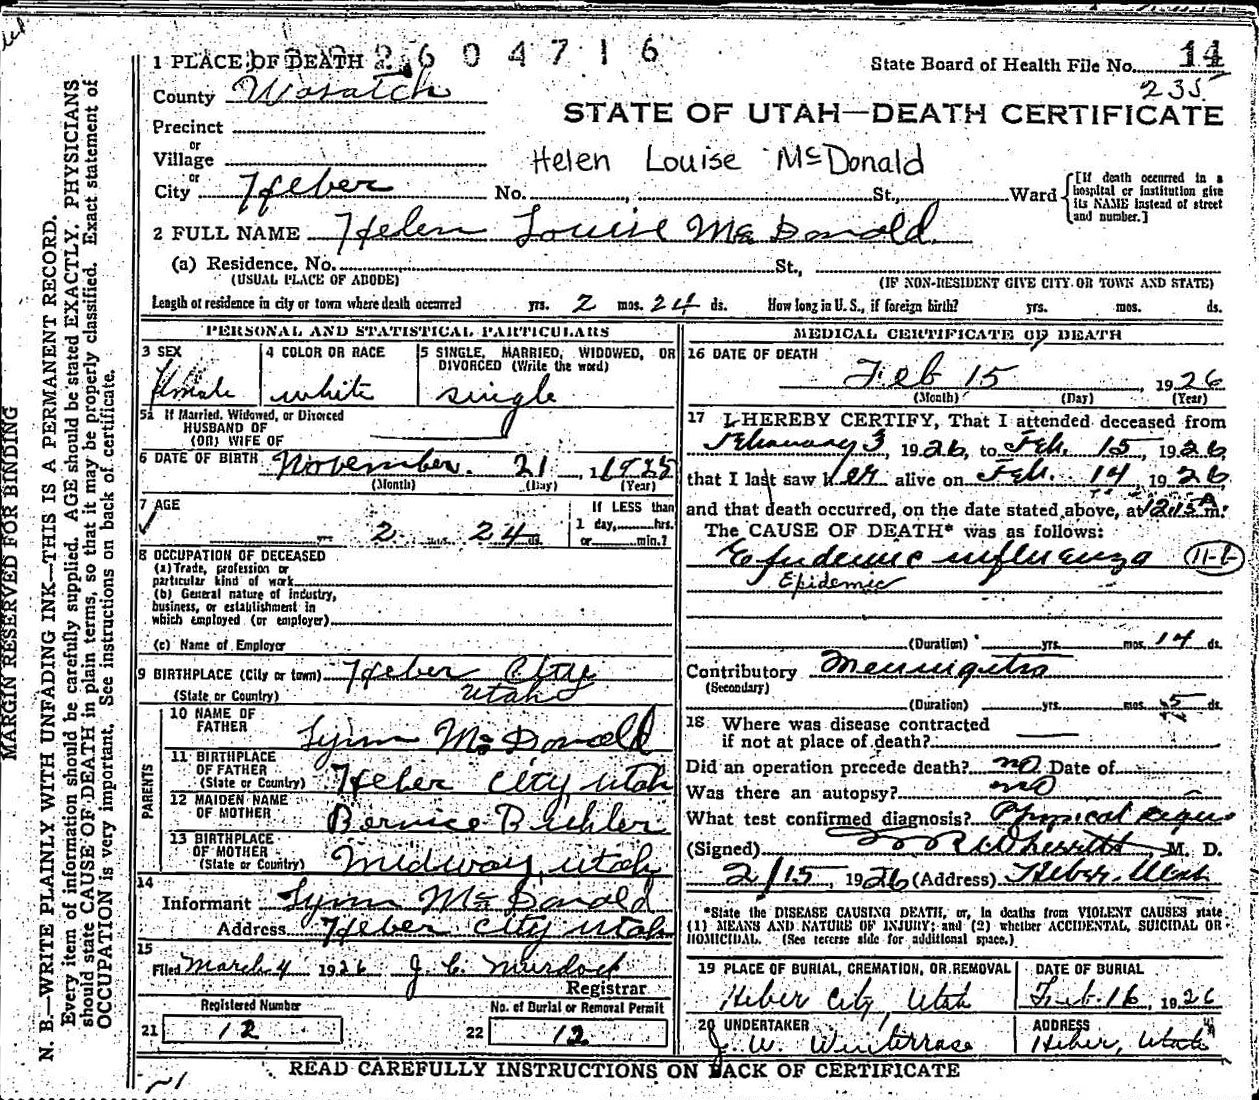 2604716
1 PLACE OF DEATH
State Board of Health File No. 14
235
County Wasatch
STATE OF UTAH—DEATH CERTIFICATE
Precinct
or
Village
Helen Louise McDonald
or
City Heber No. St., Ward
[If death occurred in a
hospital or institution give
its NAME instead of street
and number.]
2 FULL NAME Helen Louise McDonald
(a) Residence, No. St.,
(USUAL PLACE OF ABODE) (IF NON-RESIDENT GIVE CITY OR TOWN AND STATE)
Length of residence in city or town where death occurred yrs. 2 mos. 24 ds. How long in U. S., if foreign birth? yrs. mos. ds.
PERSONAL AND STATISTICAL PARTICULARS
3 SEX
female
4 COLOR OR RACE
white
5 SINGLE, MARRIED, WIDOWED, OR
DIVORCED (Write the word)
single
5a If Married, Widowed, or Divorced
HUSBAND OF
(OR) WIFE OF
6 DATE OF BIRTH November 21, 1925
(Month) (Day) (Year)
7 AGE
yrs. 2 mos. 24 ds.
If LESS than
1 day, hrs.
or min.?
8 OCCUPATION OF DECEASED
(a) Trade, profession or
particular kind of work
(b) General nature of industry,
business, or establishment in
which employed (or employer)
(c) Name of Employer
9 BIRTHPLACE (City or town) Heber City
(State or Country) Utah
PARENTS
10 NAME OF
FATHER Lynn McDonald
11 BIRTHPLACE
OF FATHER
(State or Country) Heber City, Utah
12 MAIDEN NAME
OF MOTHER Bernice Buhler
13 BIRTHPLACE
OF MOTHER
(State or Country) Midway, Utah
14
Informant Lynn McDonald
Address Heber City Utah
15
Filed March 4 1926 J. C. Murdock
Registrar
Registered Number
21 12
No. of Burial or Removal Permit
22 12
MEDICAL CERTIFICATE OF DEATH
16 DATE OF DEATH
Feb 15, 1926
(Month) (Day) (Year)
17 I HEREBY CERTIFY, That I attended deceased from
February 3, 1926, to Feb. 15, 1926,
that I last saw her alive on Feb. 14, 1926,
and that death occurred, on the date stated above, at 12:15 A m.
The CAUSE OF DEATH* was as follows:
Epidemic influenza 11-b
Epidemic
(Duration) yrs. mos. 14 ds.
Contributory Meningitis
(Secondary)
(Duration) yrs. mos. 5 ds.
18 Where was disease contracted
if not at place of death?
Did an operation precede death? no Date of
Was there an autopsy? no
What test confirmed diagnosis? Physical signs
(Signed) M. D.
2/15, 1926 (Address) Heber, Utah
*State the DISEASE CAUSING DEATH, or, in deaths from VIOLENT CAUSES state
(1) MEANS AND NATURE OF INJURY; and (2) whether ACCIDENTAL, SUICIDAL OR
HOMICIDAL. (See reverse side for additional space.)
19 PLACE OF BURIAL, CREMATION, OR REMOVAL
Heber City, Utah
DATE OF BURIAL
Feb. 16, 1926
20 UNDERTAKER
J. W. Winterrose
ADDRESS
Heber, Utah
READ CAREFULLY INSTRUCTIONS ON BACK OF CERTIFICATE
MARGIN RESERVED FOR BINDING
N. B.—WRITE PLAINLY WITH UNFADING INK—THIS IS A PERMANENT RECORD.
Every item of information should be carefully supplied. AGE should be stated EXACTLY. PHYSICIANS
should state CAUSE OF DEATH in plain terms, so that it may be properly classified. Exact statement of
OCCUPATION is very important. See instructions on back of certificate.